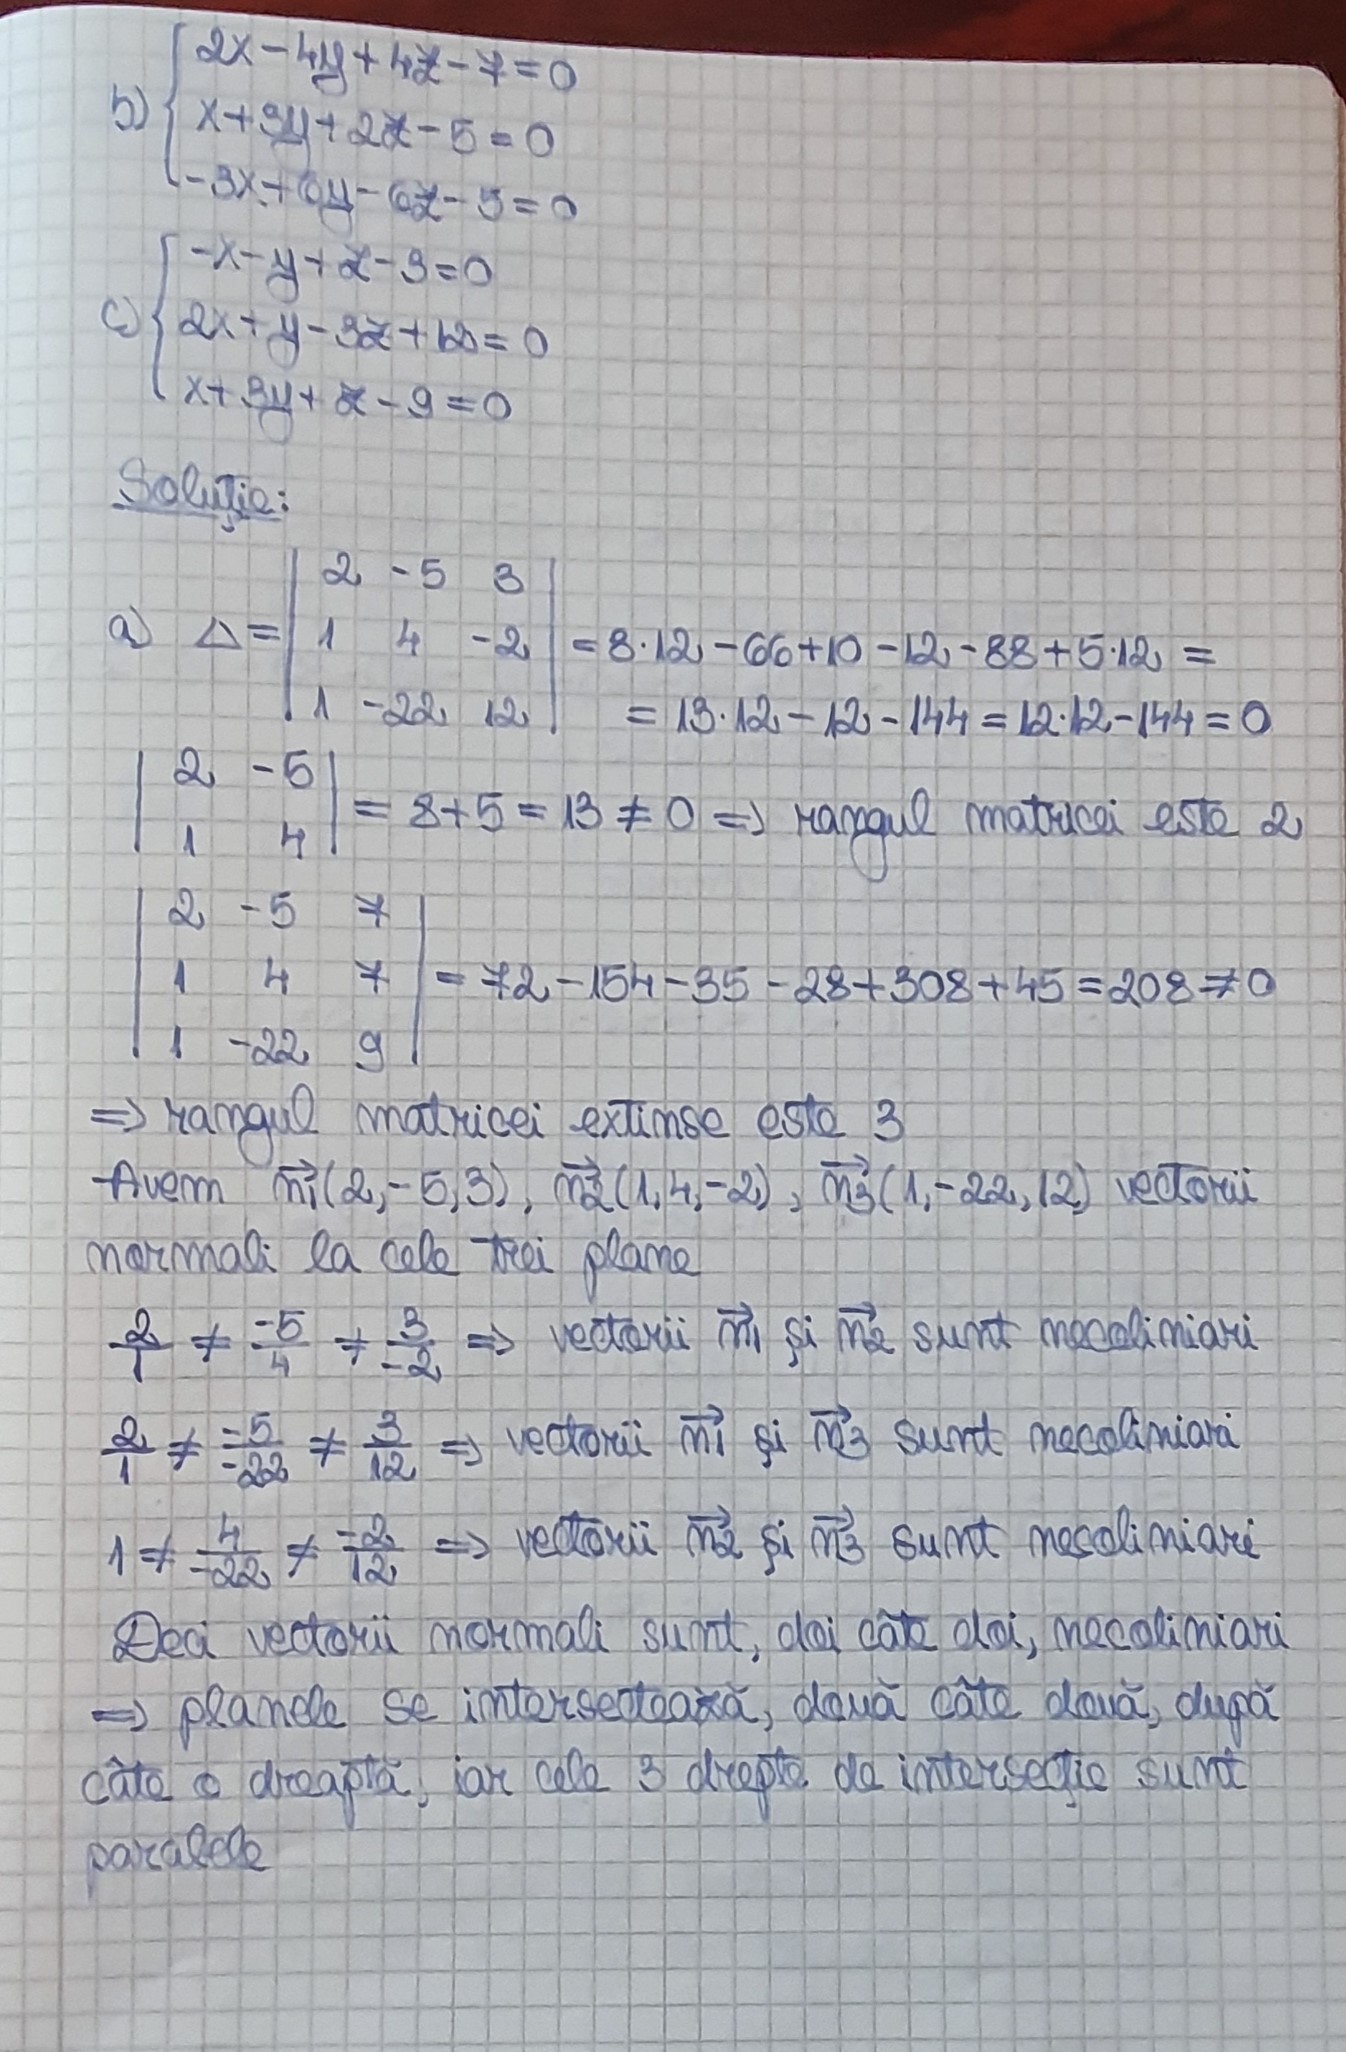 b) { 2x-4y+4z-7=0
x+3y+2z-5=0
-3x+6y-6z-5=0
c) { -x-y+z-3=0
2x+y-3z+12=0
x+3y+z-9=0
Soluție:
a) Δ= | 2 -5 3 |
| 1 4 -2 | = 8·12-66+10-12-88+5·12 =
| 1 -22 12 | = 13·12-12-144=12·12-144=0
| 2 -5 |
| 1 4 | = 8+5=13≠0 => rangul matricei este 2
| 2 -5 7 |
| 1 4 7 | = 72-154-35-28+308+45=208≠0
| 1 -22 9 |
=> rangul matricei extinse este 3
Avem n1(2,-5,3), n2(1,4,-2), n3(1,-22,12) vectorii
normali la cele trei plane
2/1 ≠ -5/4 ≠ 3/-2 => vectorii n1 și n2 sunt necoliniari
2/1 ≠ -5/-22 ≠ 3/12 => vectorii n1 și n3 sunt necoliniari
1 ≠ 4/-22 ≠ -2/12 => vectorii n2 și n3 sunt necoliniari
Deci vectorii normali sunt, doi câte doi, necoliniari
=> planele se intersectează, două câte două, după
câte o dreaptă, iar cele 3 drepte de intersecție sunt
paralele